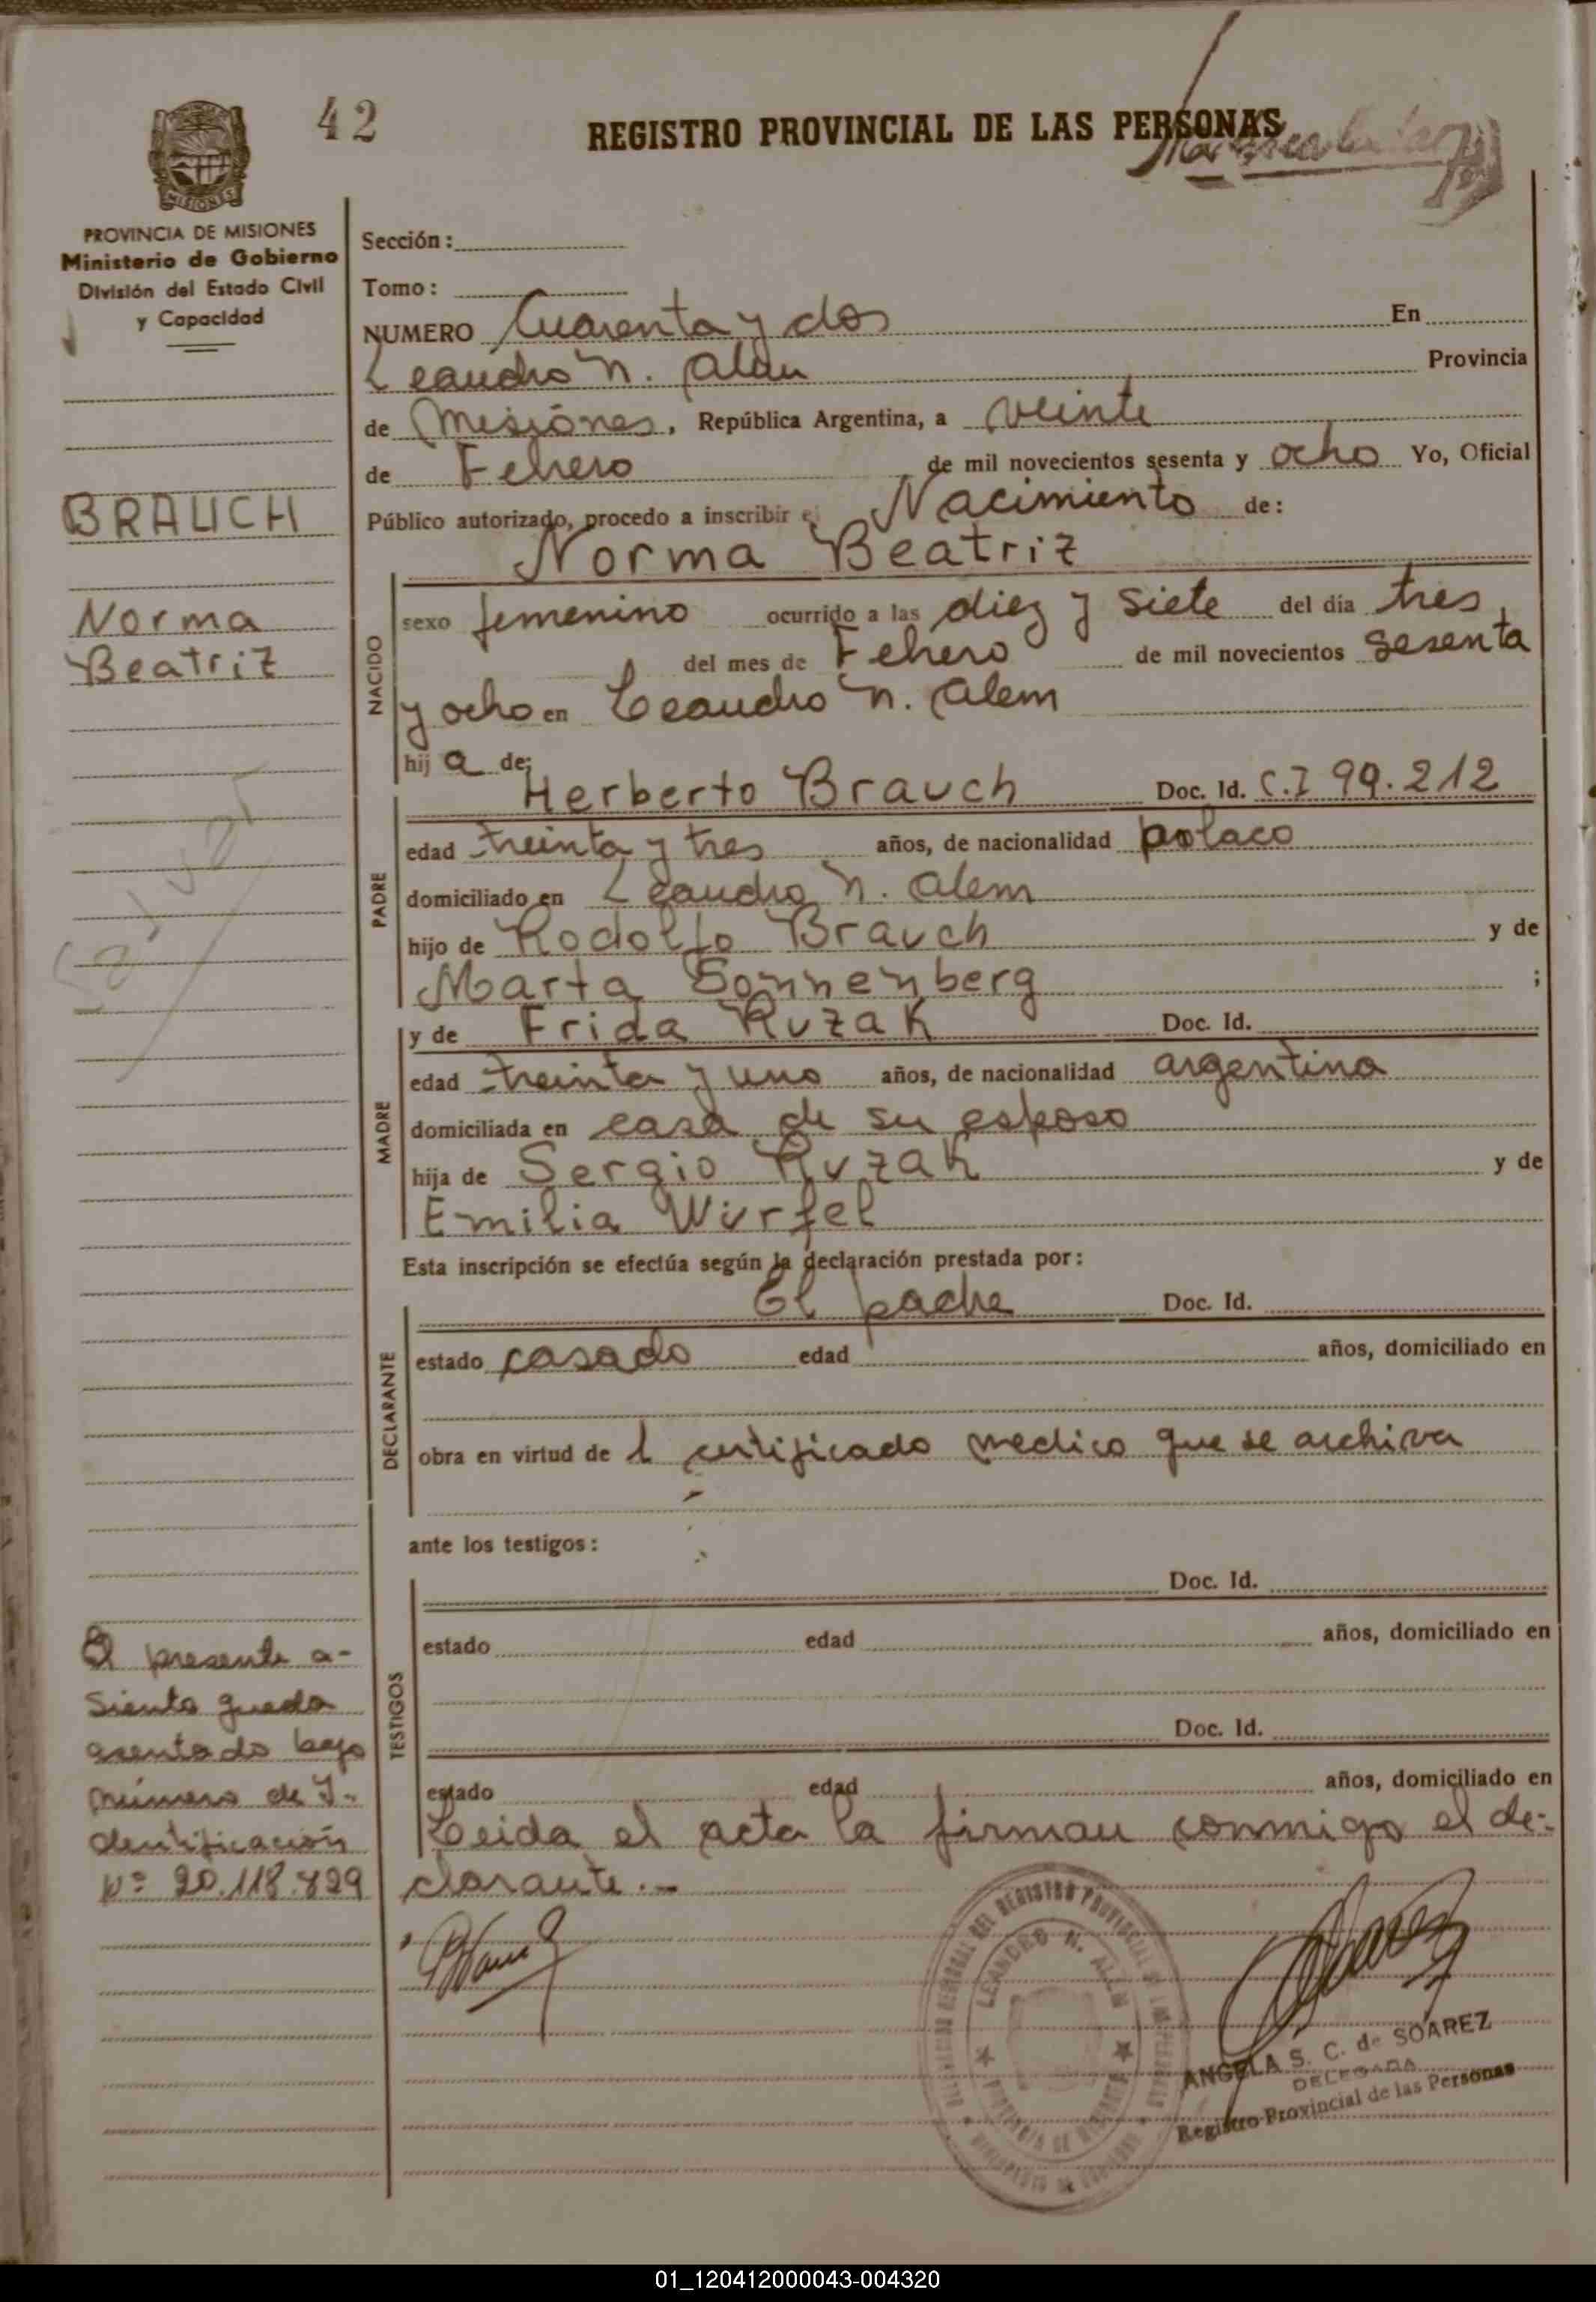 42
REGISTRO PROVINCIAL DE LAS PERSONAS
PROVINCIA DE MISIONES
Ministerio de Gobierno
División del Estado Civil
y Capacidad
Sección:
Tomo:
NUMERO Cuarenta y dos En
Leandro N. Alem Provincia
de Misiónes, República Argentina, a veinte
de Febrero de mil novecientos sesenta y ocho Yo, Oficial
Público autorizado, procedo a inscribir el Nacimiento de:
Norma Beatriz
BRAUCH
Norma
Beatriz
NACIDO
sexo femenino ocurrido a las diez y siete del día tres
del mes de Febrero de mil novecientos sesenta
y ocho en Leandro N. Alem
hij a de:
PADRE
Herberto Brauch Doc. Id. C.I 99.212
edad treinta y tres años, de nacionalidad polaco
domiciliado en Leandro N. Alem
hijo de Rodolfo Brauch y de
Marta Sonnenberg ;
MADRE
y de Frida Ruzak Doc. Id.
edad treinta y uno años, de nacionalidad argentina
domiciliada en casa de su esposo
hija de Sergio Ruzak y de
Emilia Würfel
Esta inscripción se efectúa según la declaración prestada por:
DECLARANTE
El padre Doc. Id.
estado casado edad años, domiciliado en
obra en virtud de l certificado medico que se archiva
ante los testigos:
TESTIGOS
Doc. Id.
estado edad años, domiciliado en
Doc. Id.
estado edad años, domiciliado en
Leida el acta la firman conmigo el de-
clarante.-
El presente a-
siento queda
asentado bajo
número de I-
dentificación
Nº 20.118.829
LEANDRO N. ALEM
PROVINCIA DE MISIONES
ANGELA S. C. de SOAREZ
DELEGADA
Registro Provincial de las Personas
01_120412000043-004320